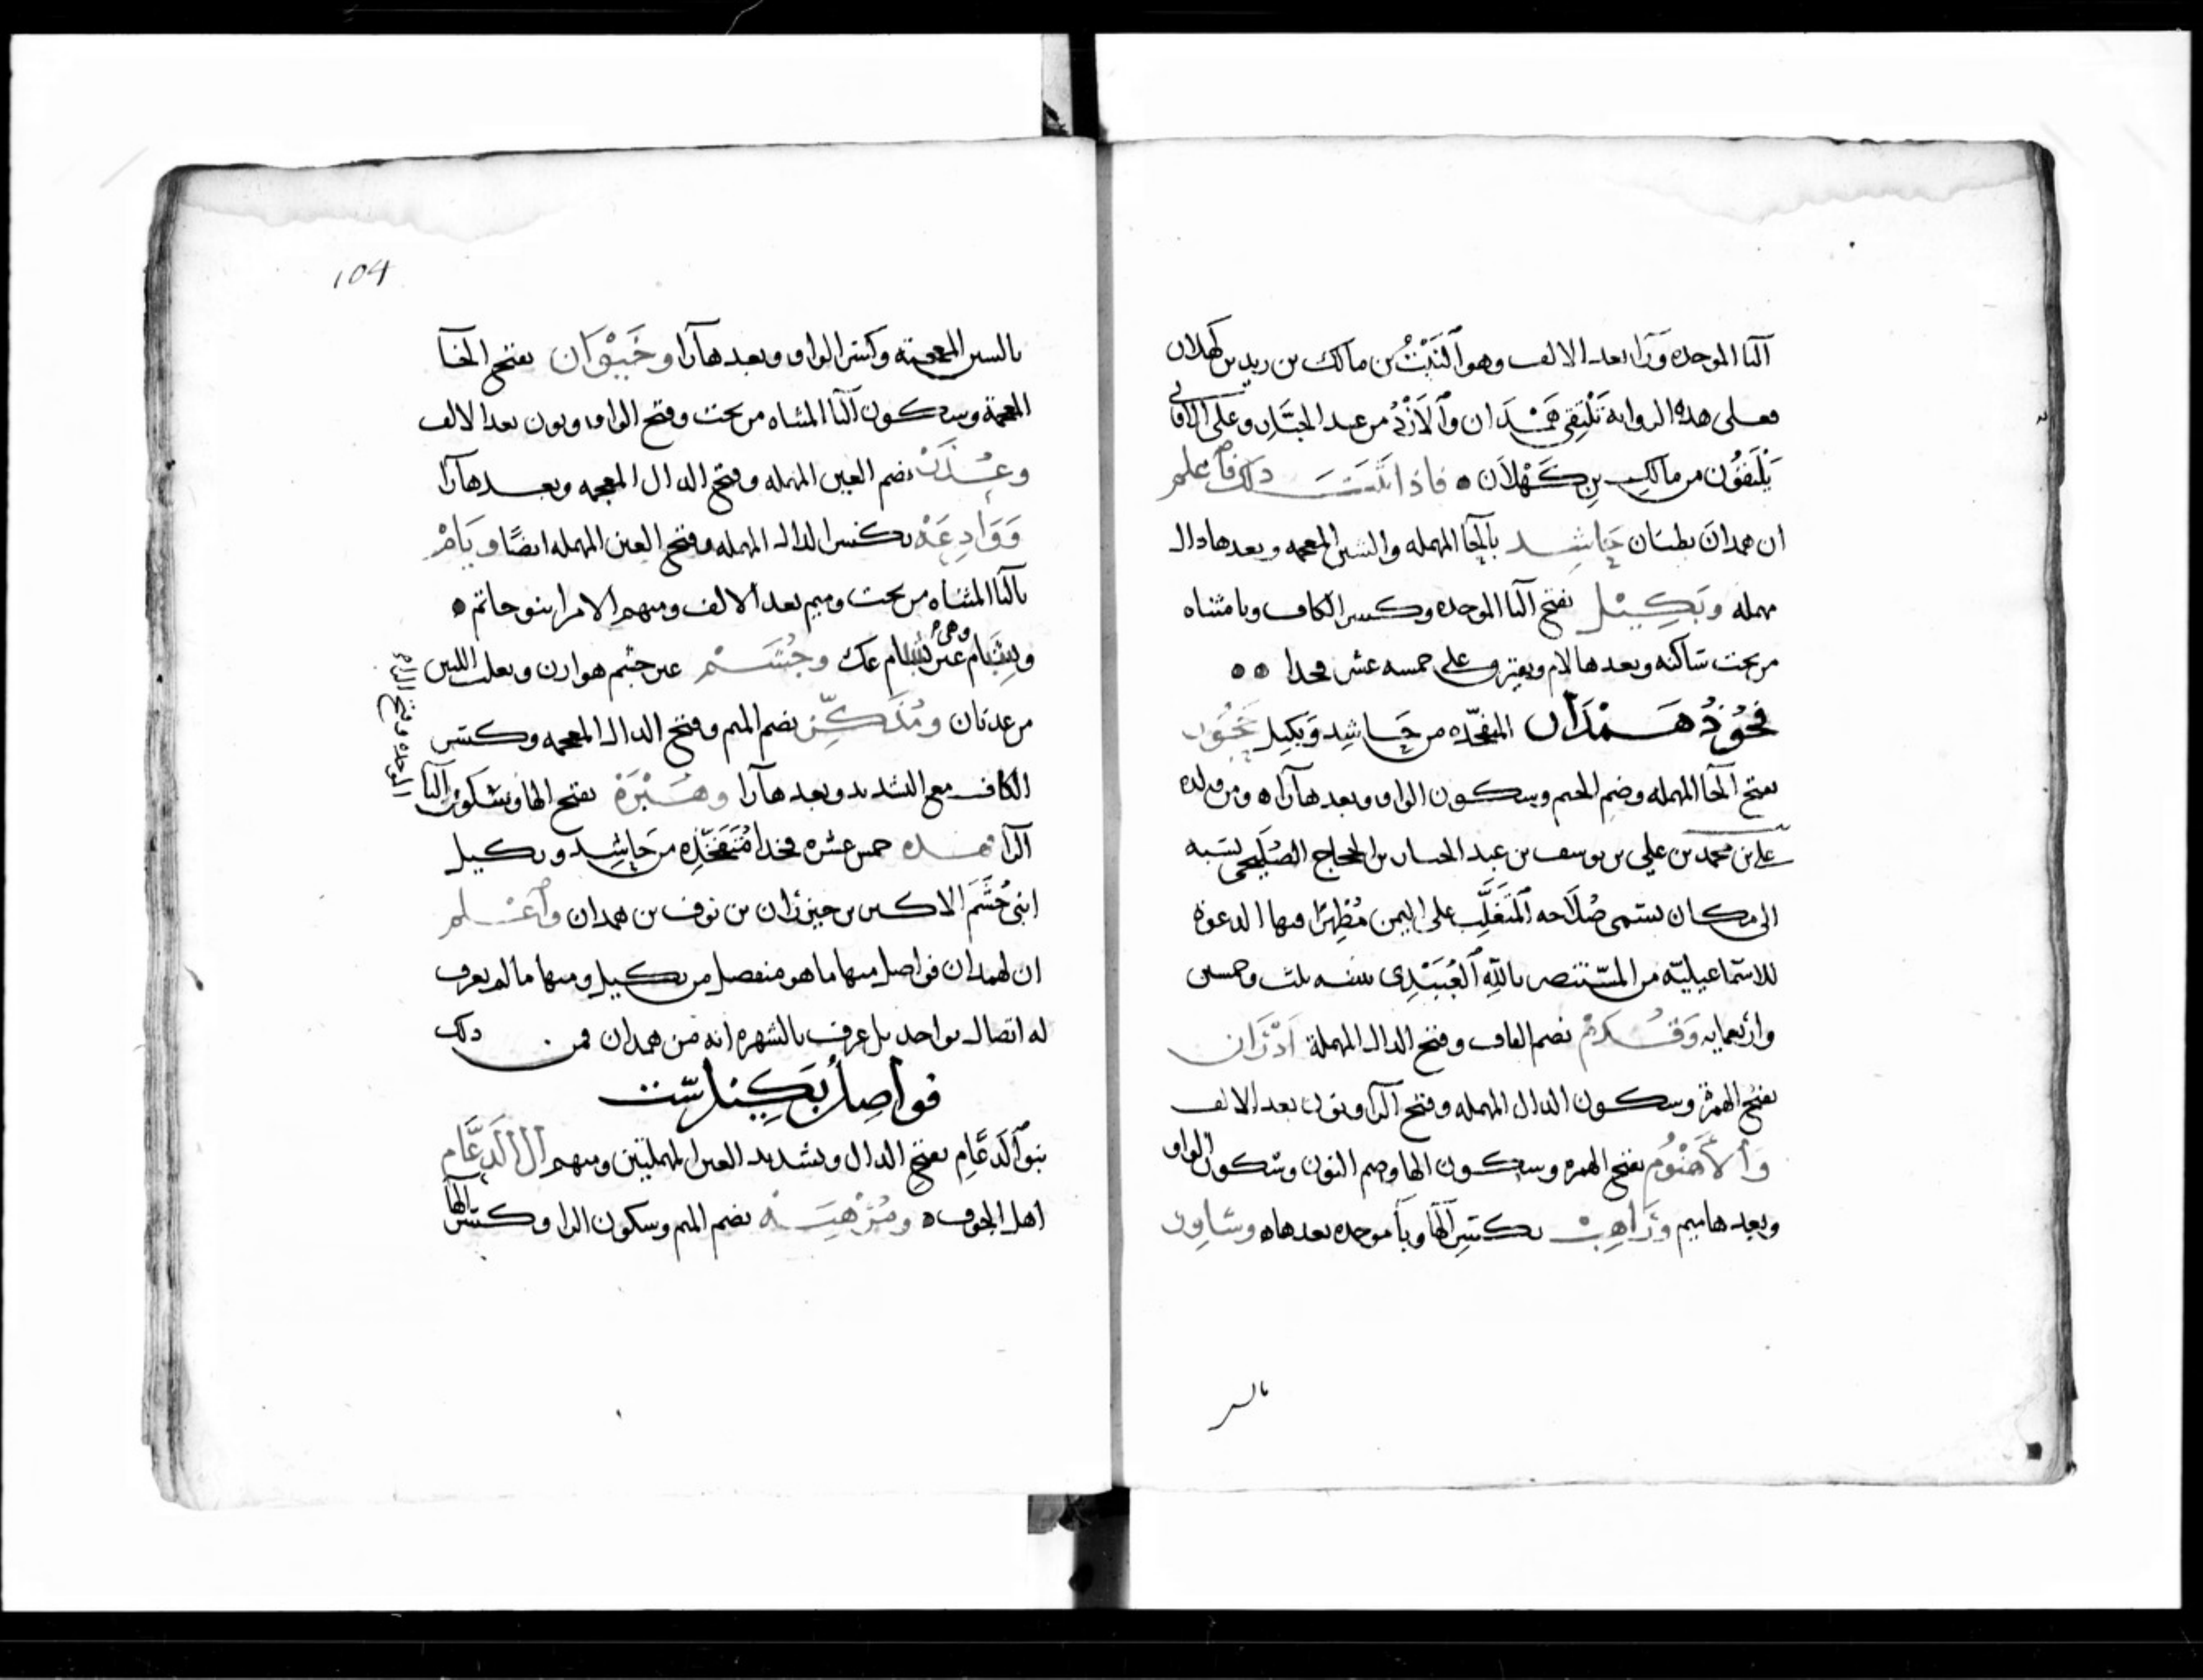 البا الموحده ورا بعد الالف وهو النَبْتُ بن مالك بن زيد بن كهلان
فعلى هذه الروايه تَلْتَقِي هَمْدَان وَالأزْدُ من عبد الجبّار وعلى الاولى
يَلْتَقُون من مالك بن كَهْلَان ٥ فاذا تَبَيَّنَتْ ذلك فاعلم
ان همدان بطنان حَاشِد بالحا المهمله والشين المعجمه وبعدها دال
مهمله وبَكِيْل بفتح البا الموحده وكسر الكاف ويا مثناه
من تحت ساكنه وبعدها لام ويفترق على خمسه عشر فخذا ٥٥
فُخُوذُ هَمْدَان المتفخّذه من حَاشِد وَبَكِيل حَجُور
بفتح الحا المهمله وضم الجيم وسكون الواو وبعدها را ٥ ومن ولده
علي بن محمد بن علي بن يوسف بن عبد الجبار بن الحجاج الصُلَيحي نسبه
الى مكان يسمى صُلَاحه المُتَغَلِّب على اليمن مُظهِرًا فيها الدعوة
للاسماعيليّه من المستنصر بالله العُبَيْدِى سنه ثلث وخمسين
واربعمايه وَقُدَمْ بضم القاف وفتح الدال المهملة اَدْرَان
بفتح الهمزة وسكون الدال المهمله وفتح الرا ونون بعد الالف
وَالأَهْنُوم بفتح الهمزه وسكون الها وضم النون وسكون الواو
وبعدها ميم وَرَاهِبْ بكسر الها وبا موحده بعدها ٥ وشاوِر
بالس
104
بالسين المعجمة وكسر الواو وبعدها را وخَيْوَان بفتح الخا
المعجمة وسكون اليا المثناه من تحت وفتح الواو ونون بعد الالف
وعُذَرْ بضم العين المهمله وفتح الذال المعجمه وبعدها را
وَوَادِعَهْ بكسر الدال المهمله وفتح العين المهمله ايضًا ويَامْ
باليا المثناه من تحت وميم بعد الالف ومنهم الامرا بنو حاتم ٥
وشِبَام وهي غير شبام عك وجُشَمْ غير جشم هوازن وتغلب اللتين
من عدنان ومُذَكِّر بضم الميم وفتح الذال المعجمه وكسر
الكاف مع التشديد وبعدها را وهَبْرَهْ بفتح الها وسكون البا
الموحده وفتح الراء
الرا هذه خمس عشره فخذا مُتَفَخِّذه من حَاشِد وبكيل
ابنى جُشَمَ الاكبر بن خيرَان بن نوف بن همدان واعلم
ان لهمدان فواصل منها ما هو منفصل من بكيل ومنها ما لم يعرف
له اتصال بواحد بل عرف بالشهره انه من همدان فمن ذلك
فواصِل بَكِيْل ستت
بنو الدَعَّام بفتح الدال وتشديد العين المهملتين ومنهم ال الدَعَّام
اهل الجوف ٥ ومُرْهِبَهْ بضم الميم وسكون الرا وكسر الها